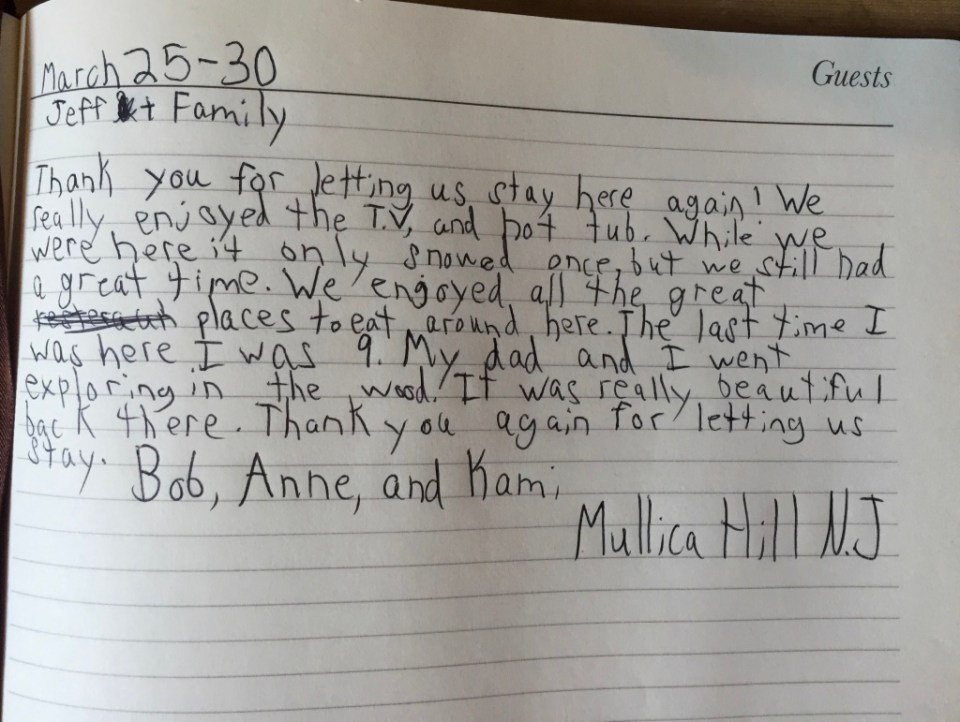 March 25-30
Guests
Jeff + Family
Thank you for letting us stay here again! We
really enjoyed the T.V, and hot tub. While we
were here it only snowed once, but we still had
a great time. We enjoyed all the great
places to eat around here. The last time I
was here I was 9. My dad and I went
exploring in the wood! It was really beautiful
back there. Thank you again for letting us
stay. Bob, Anne, and Kami
Mullica Hill N.J